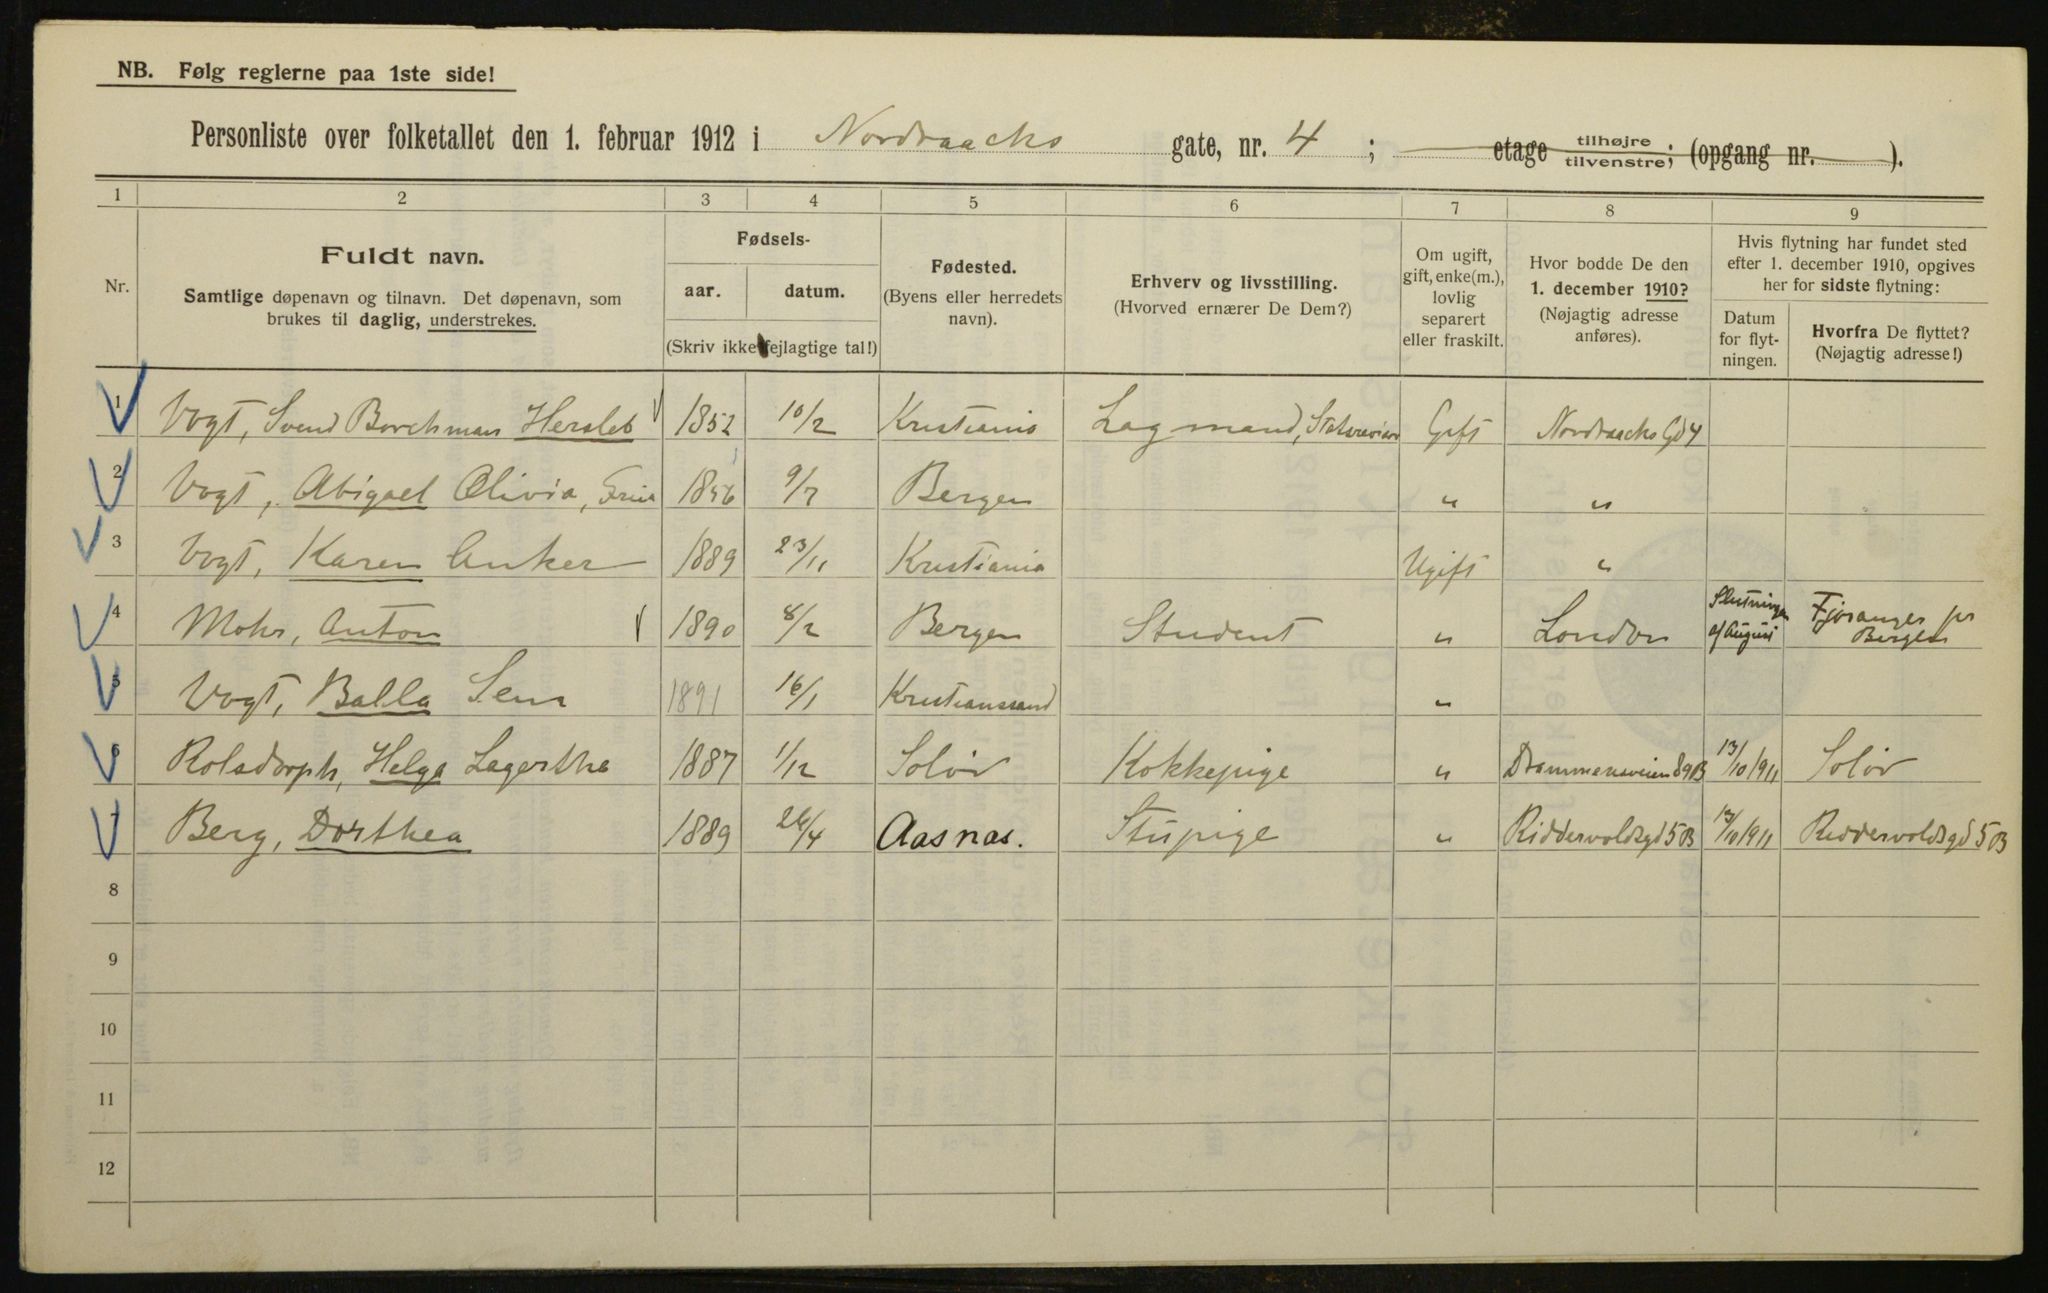 NB. Følg reglerne paa 1ste side!
Personliste over folketallet den 1. februar 1912 i Nordraacks gate, nr. 4 ; etage tilhøjre tilvenstre; (opgang nr. ).
1 2 3 4 5 6 7 8 9
Nr.
Fuldt navn.
Samtlige døpenavn og tilnavn. Det døpenavn, som
brukes til daglig, understrekes.
Fødsels-
aar. datum.
(Skriv ikke fejlagtige tal!)
Fødested.
(Byens eller herredets
navn).
Erhverv og livsstilling.
(Hvorved ernærer De Dem?)
Om ugift,
gift, enke(m.),
lovlig
separert
eller fraskilt.
Hvor bodde De den
1. december 1910?
(Nøjagtig adresse
anføres).
Hvis flytning har fundet sted
efter 1. december 1910, opgives
her for sidste flytning:
Datum
for flyt-
ningen.
Hvorfra De flyttet?
(Nøjagtig adresse!)
1 Vogt, Svend Borchman Hersleb 1852 10/2 Kristiania Lagmand, Gift Nordraacks Gd 4
2 Vogt, Abigael Olivia, Frue 1856 9/7 Bergen " "
3 Vogt, Karen Anker 1889 23/11 Kristiania Ugift "
4 Mohr, Anton 1890 8/2 Bergen Student " London Slutningen af August Fjøsanger pr Bergen
5 Vogt, Balla Sem 1891 16/1 Kristianssand "
6 Rolsdorph, Helga Lagertha 1887 1/12 Solør Kokkepige " Drammensveien 89B 13/10 1911 Solør
7 Berg, Dorthea 1889 26/4 Aasnas. Stupige " Riddervoldsgd 5B 13/10 1911 Riddervoldsgd 5B
8
9
10
11
12